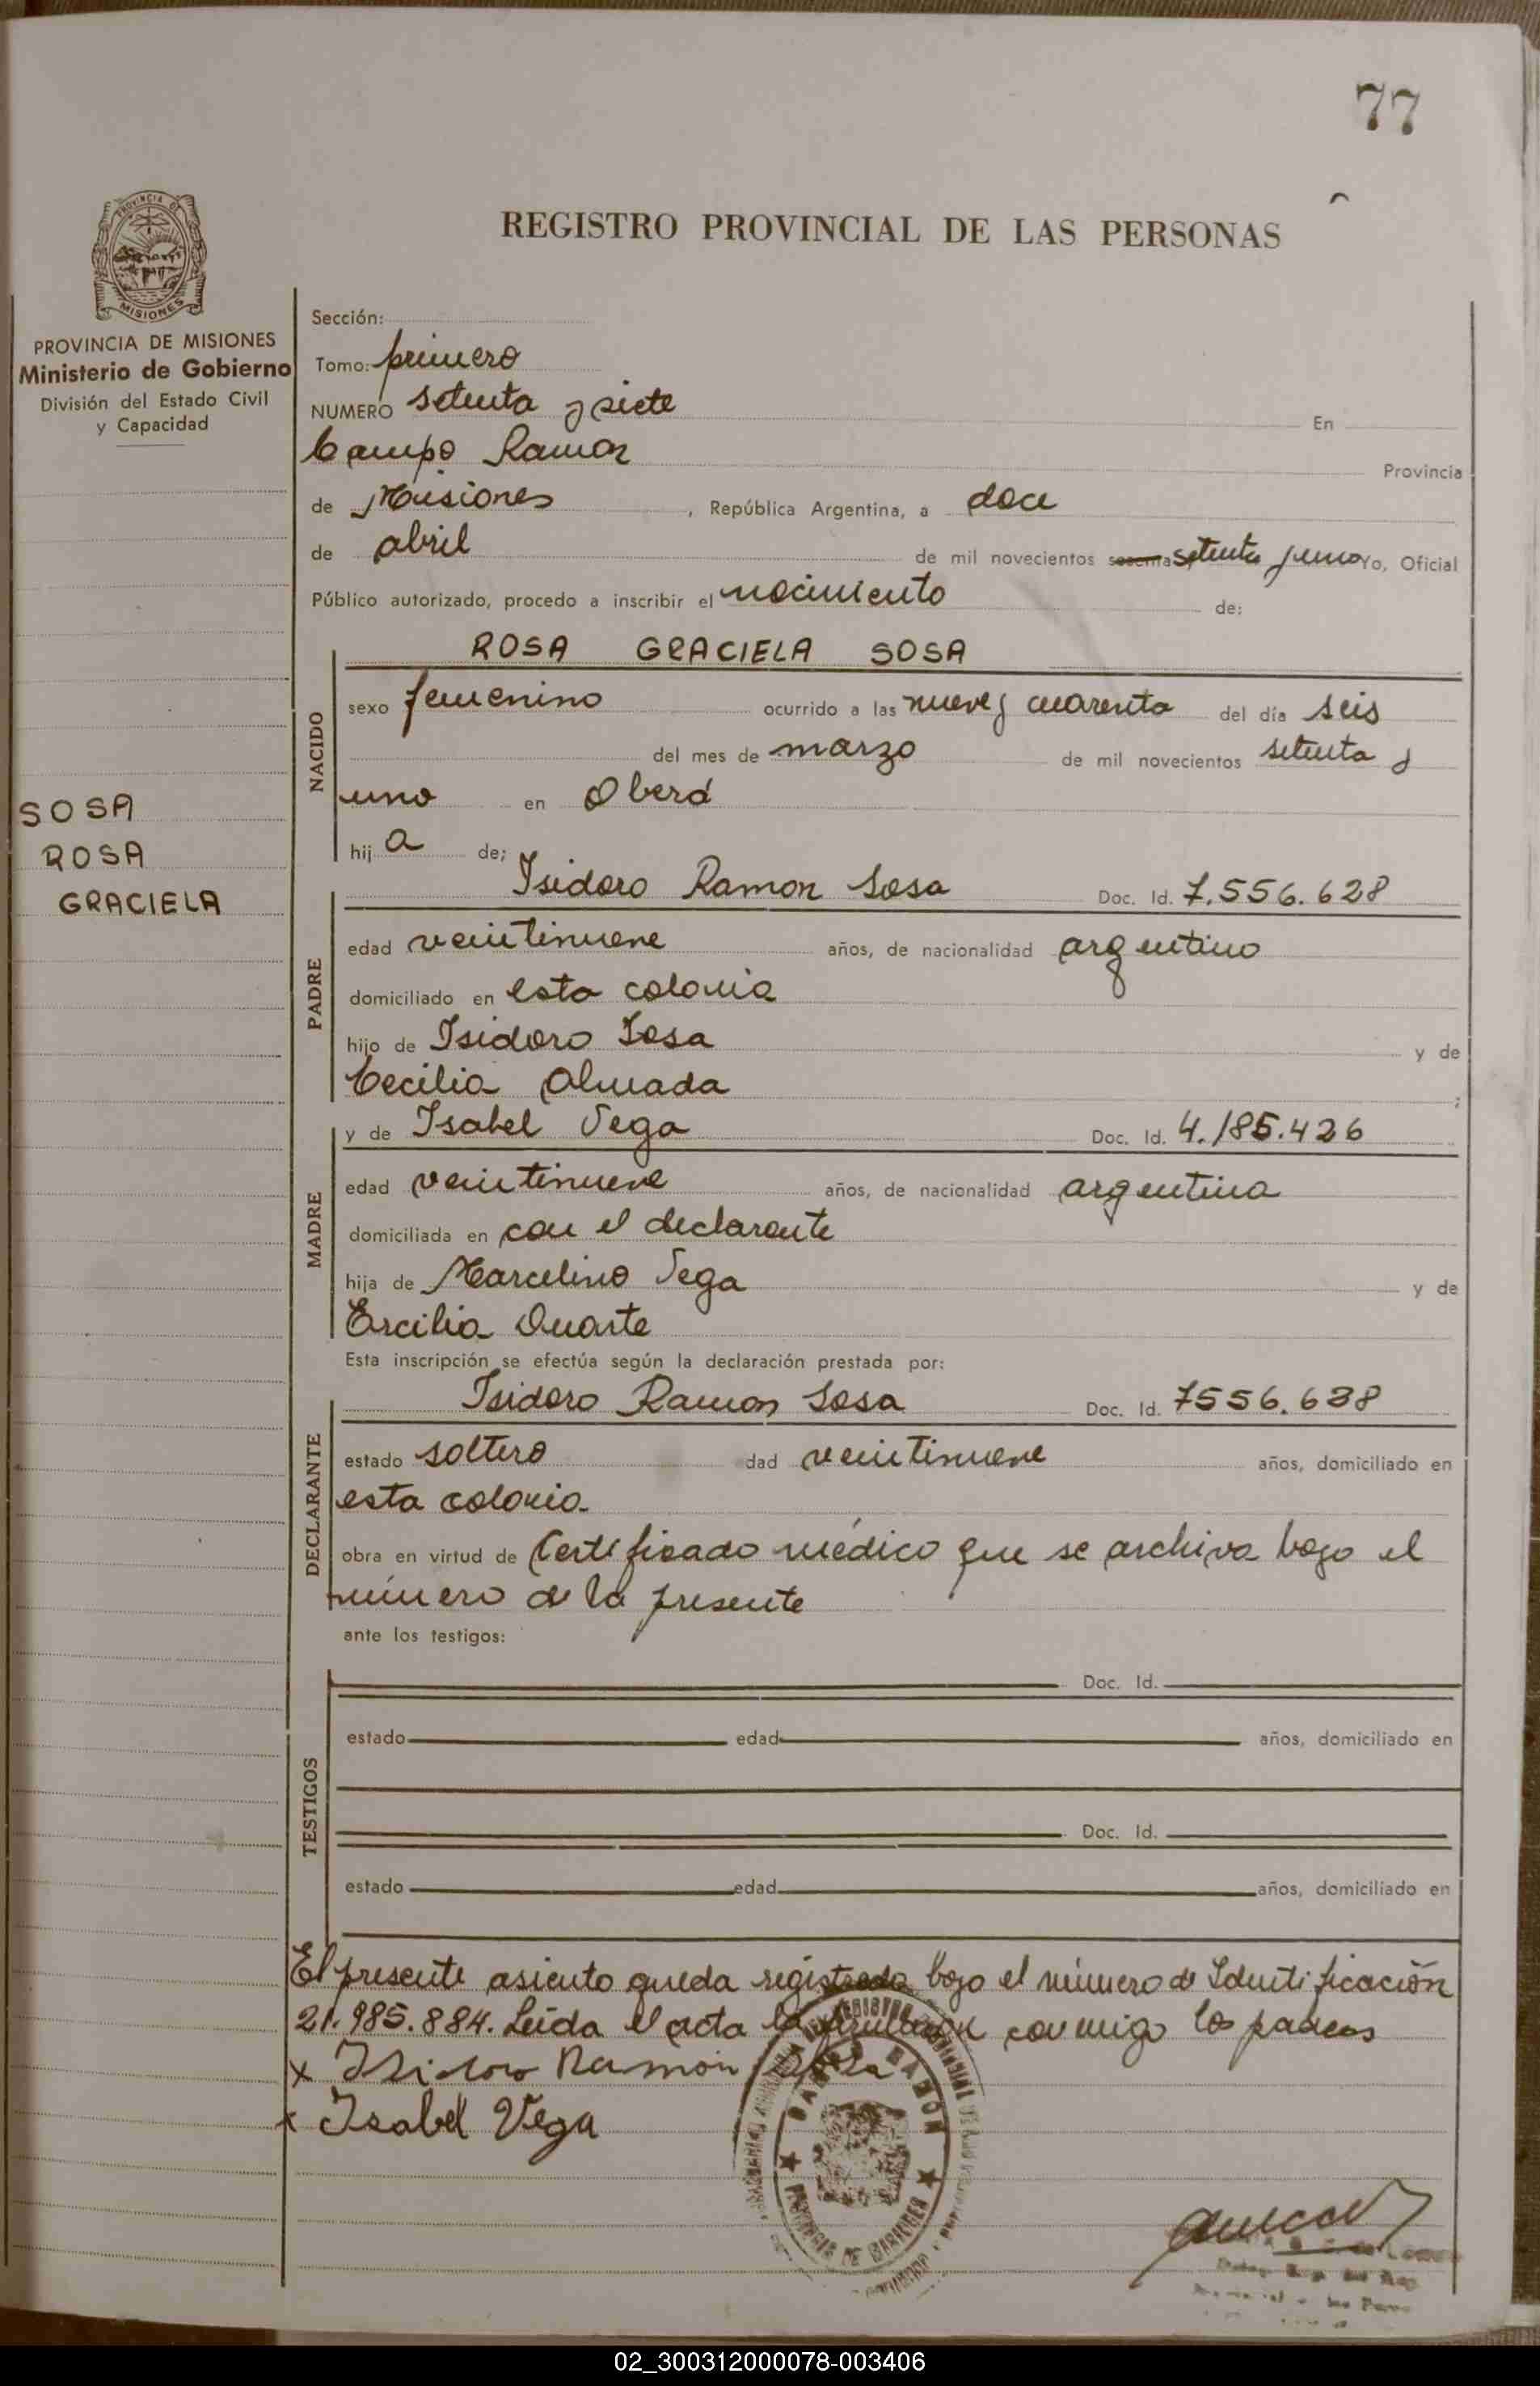 77
REGISTRO PROVINCIAL DE LAS PERSONAS
PROVINCIA DE
MISIONES
PROVINCIA DE MISIONES
Ministerio de Gobierno
División del Estado Civil
y Capacidad
SOSA
ROSA
GRACIELA
Sección:
Tomo: primero
NUMERO setenta y siete En
Campo Ramon Provincia
de Misiones, República Argentina, a doce
de abril de mil novecientos setenta y uno Yo, Oficial
Público autorizado, procedo a inscribir el nacimiento de:
NACIDO
ROSA GRACIELA SOSA
sexo femenino ocurrido a las nueve y cuarenta del día seis
del mes de marzo de mil novecientos setenta y
uno en Oberá
hija de;
PADRE
Isidoro Ramon Sosa Doc. Id. 7.556.628
edad veintinueve años, de nacionalidad argentino
domiciliado en esta colonia
hijo de Isidoro Sosa y de
Cecilia Almada ;
MADRE
y de Isabel Vega Doc. Id. 4.185.426
edad veintinueve años, de nacionalidad argentina
domiciliada en con el declarante
hija de Marcelino Vega y de
Ercilia Duarte
Esta inscripción se efectúa según la declaración prestada por:
DECLARANTE
Isidoro Ramon Sosa Doc. Id. 7556.638
estado soltero dad veintinueve años, domiciliado en
esta colonia
obra en virtud de Certificado médico que se archiva bajo el
número de la presente
ante los testigos:
TESTIGOS
Doc. Id.
estado edad años, domiciliado en
Doc. Id.
estado edad años, domiciliado en
El presente asiento queda registrado bajo el número de Identificación
21.985.884. Leída el acta la conmigo los padres
x Isidoro Ramon Sosa
x Isabel Vega
RAMON
PROVINCIA DE MISIONES
02_300312000078-003406